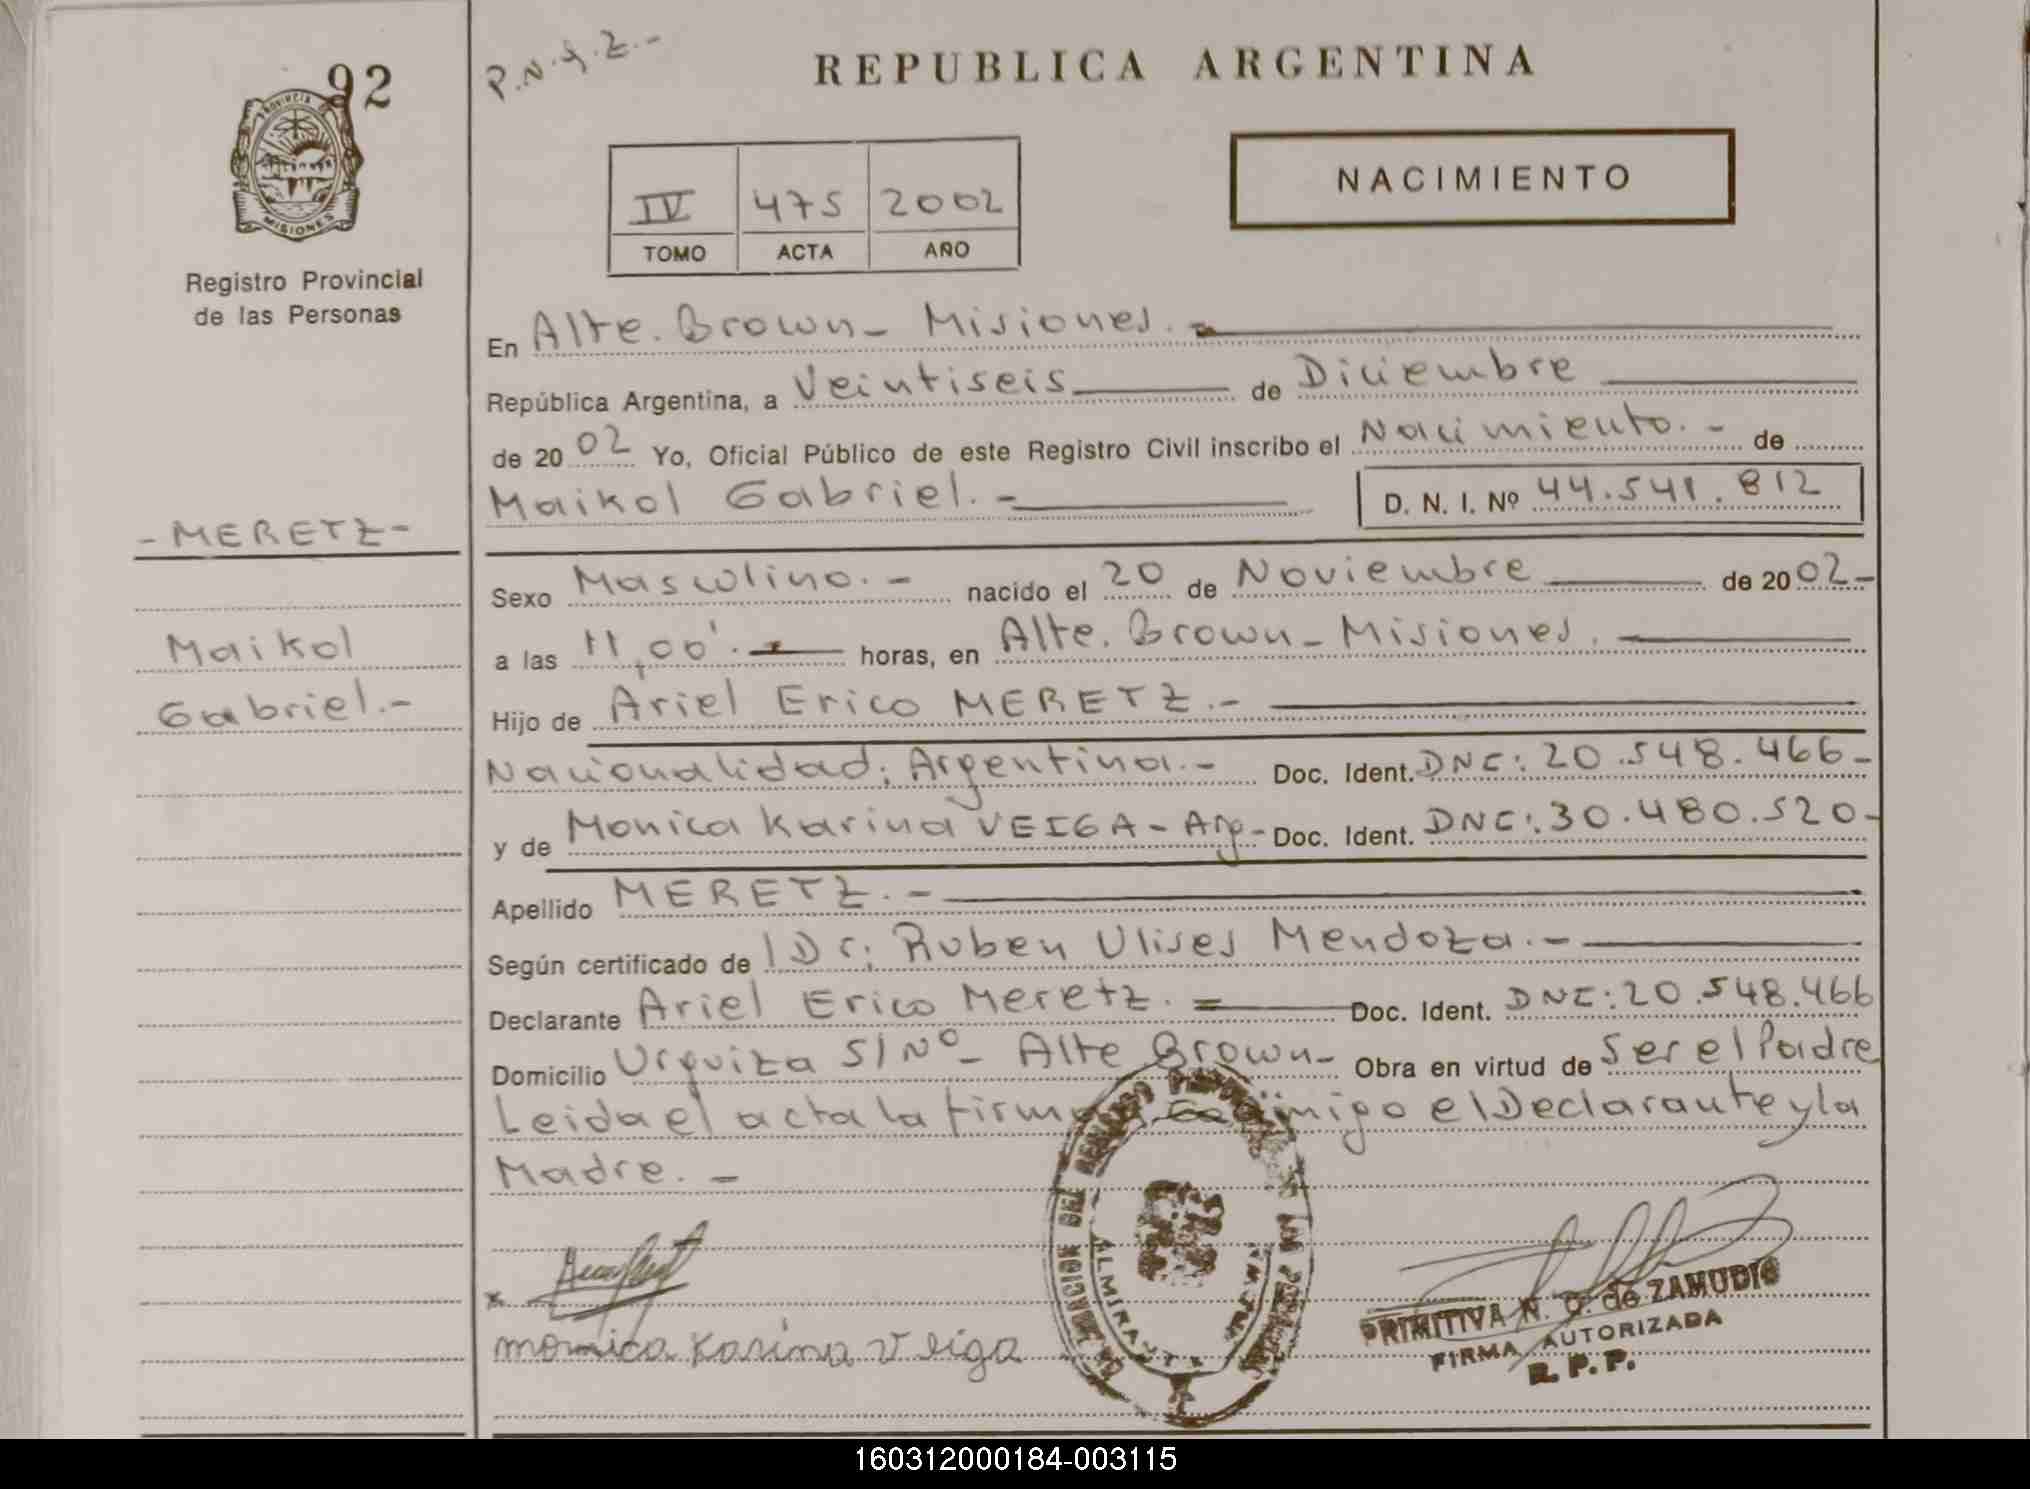 92
P.N.A.Z.-
REPUBLICA ARGENTINA
PROVINCIA DE
MISIONES
IV 475 2002
TOMO ACTA AÑO
NACIMIENTO
Registro Provincial
de las Personas
En Alte. Brown - Misiones. -
República Argentina, a Veintiseis de Diciembre
de 20 02 Yo, Oficial Público de este Registro Civil inscribo el Nacimiento. - de
Maikol Gabriel. - D. N. I. Nº 44.541.812
- MERETZ -
Sexo Masculino. - nacido el 20 de Noviembre de 20 02 -
Maikol
a las 11,00'. - horas, en Alte. Brown - Misiones. -
Gabriel. -
Hijo de Ariel Erico MERETZ. -
Nacionalidad: Argentina. - Doc. Ident. DNI: 20.548.466 -
y de Monica Karina VEIGA - Arg - Doc. Ident. DNI: 30.480.520 -
Apellido MERETZ. -
Según certificado de / Dr: Ruben Ulises Mendoza. -
Declarante Ariel Erico Meretz. = Doc. Ident. DNI: 20.548.466
Domicilio Urquiza S/Nº - Alte Brown - Obra en virtud de Ser el Padre
Leida el acta la firma conmigo el Declarante y la
Madre. -
x
monica Karina Veiga
ALMIRANTE
PRIMITIVA N. O. de ZAMUDIO
FIRMA AUTORIZADA
R. P. P.
160312000184-003115